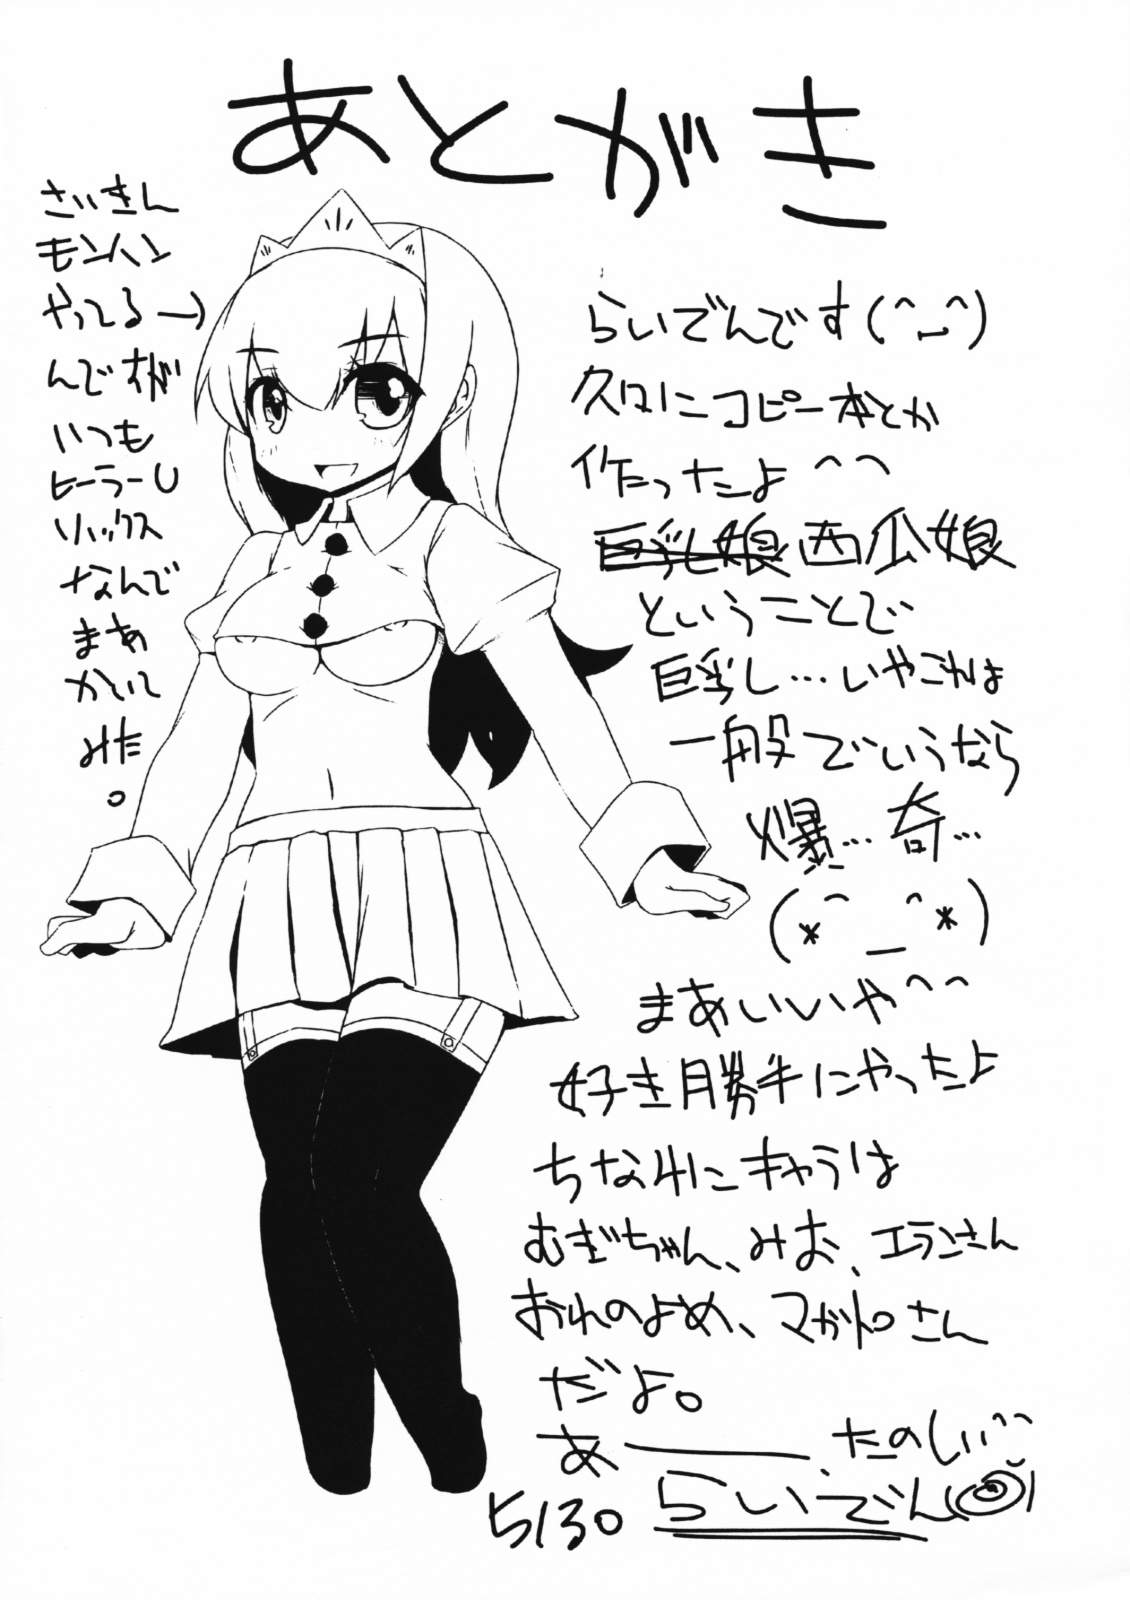 あとがき
さいきん
モンハン
やってる→
んですが
いつも
ヒーラーU
ソックス
なんで
まあ
かいて
みた
。
らいでんです(^_^)
久々にコピー本とか
作ったよ^^
巨乳娘 西瓜娘
ということで
巨乳…いやこれは
一般でいうなら
爆…奇…
(*^_^*)
まあいいや^^
好き勝手にやったよ
ちなみにキャラは
むぎちゃん、みお、エランさん
おれのよめ、マガトロさん
だよ。
あー、たのしい^^
5/30 らいでん